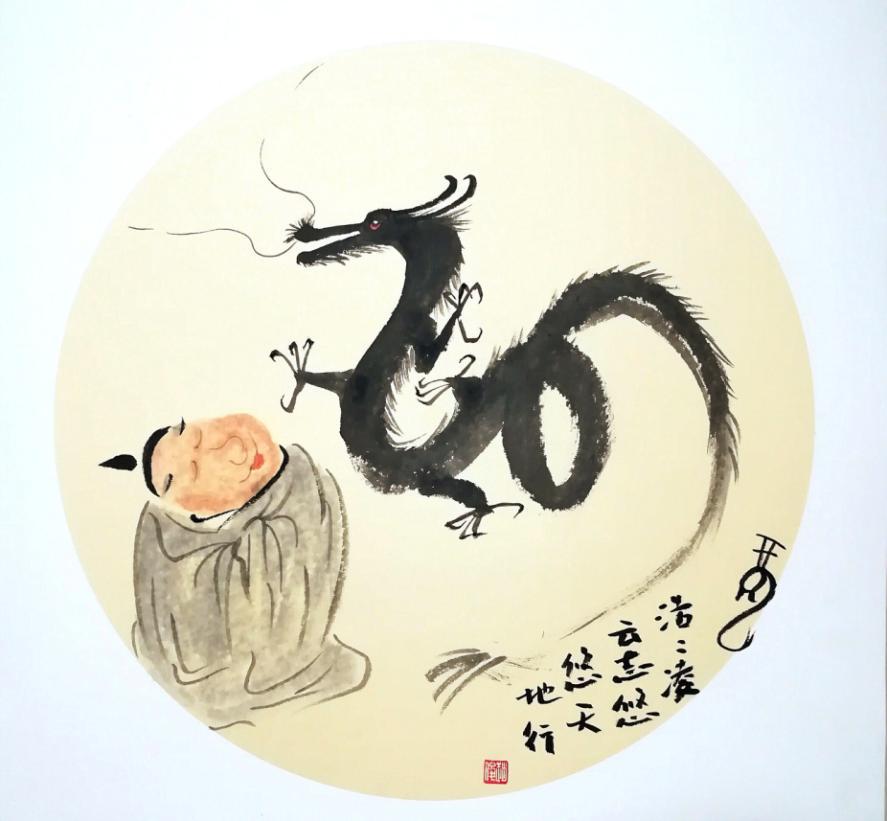 浩〻凌
云志悠
悠天
地行